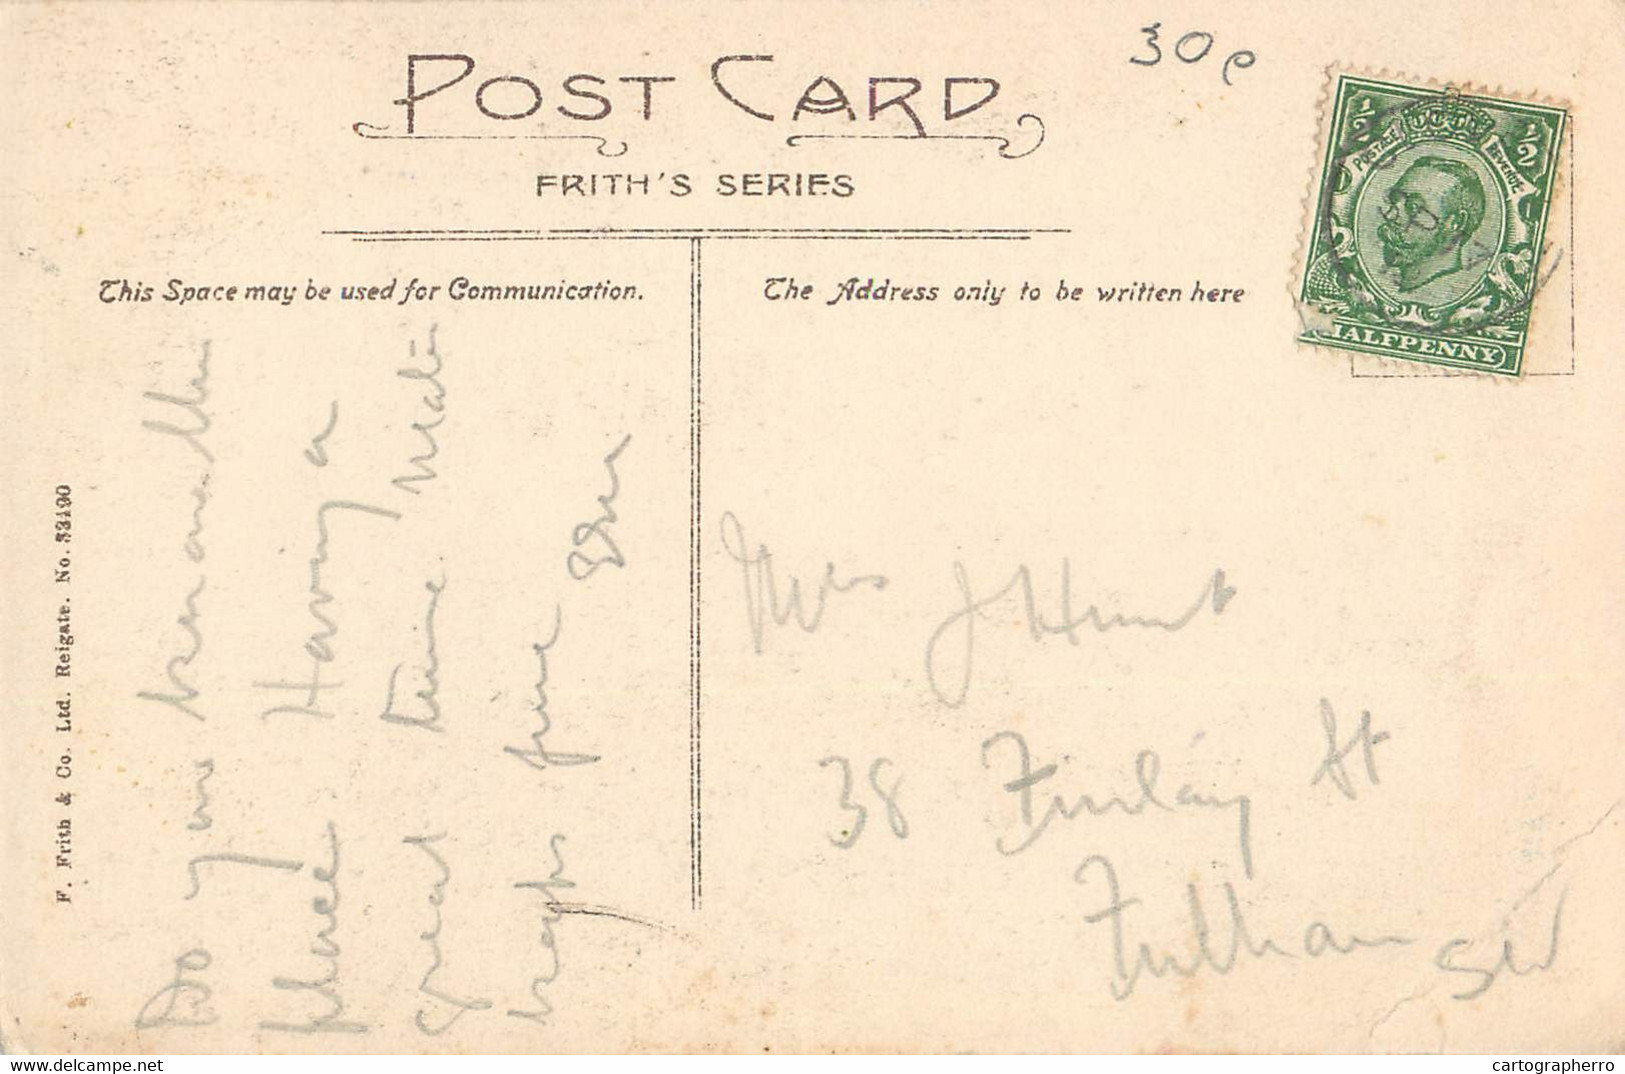 30p
POST CARD
FRITH'S SERIES
This Space may be used for Communication.
The Address only to be written here
1/2 1/2
POSTAGE REVENUE
HALFPENNY
F. Frith & Co. Ltd. Reigate. No. 53190
Do you remember this
place Having a
great time
weather fine
Mrs J Hunt
38 Finlay St
Fulham SW
delcampe.net
cartographerro